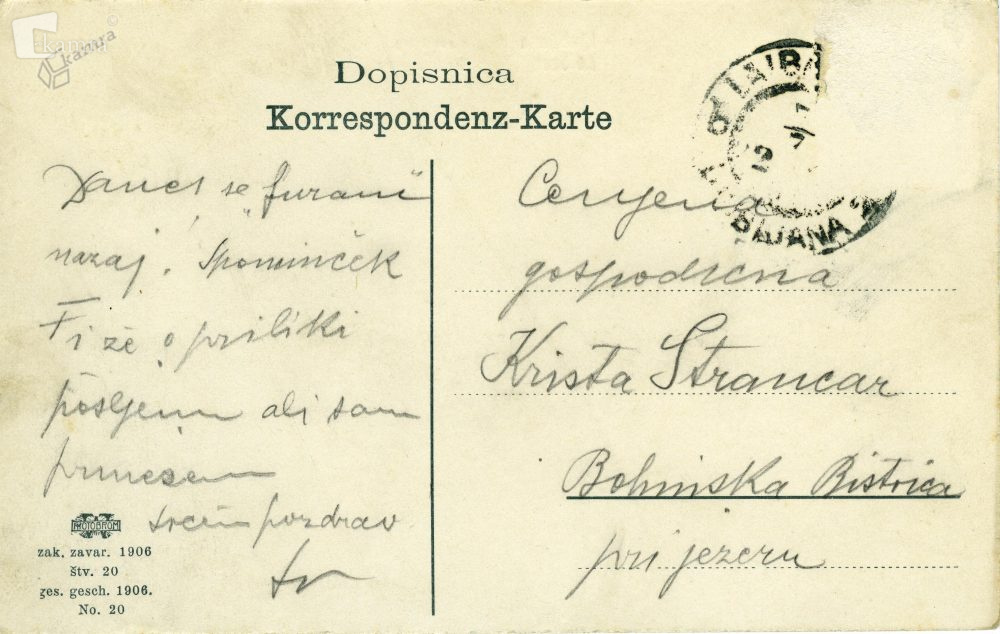 kamra
Dopisnica
Korrespondenz-Karte
LAIBA
LJUBLJANA
Danes se "furam"
nazaj. Spominček
Ti že o priliki
pošljem ali sam
prinesem
srčen pozdrav
Cenjena
gospodična
Krista Strancar
Bohinjska Bistrica
pri jezeru
PHOTOBROM
zak. zavar. 1906
štv. 20
ges. gesch. 1906.
No. 20